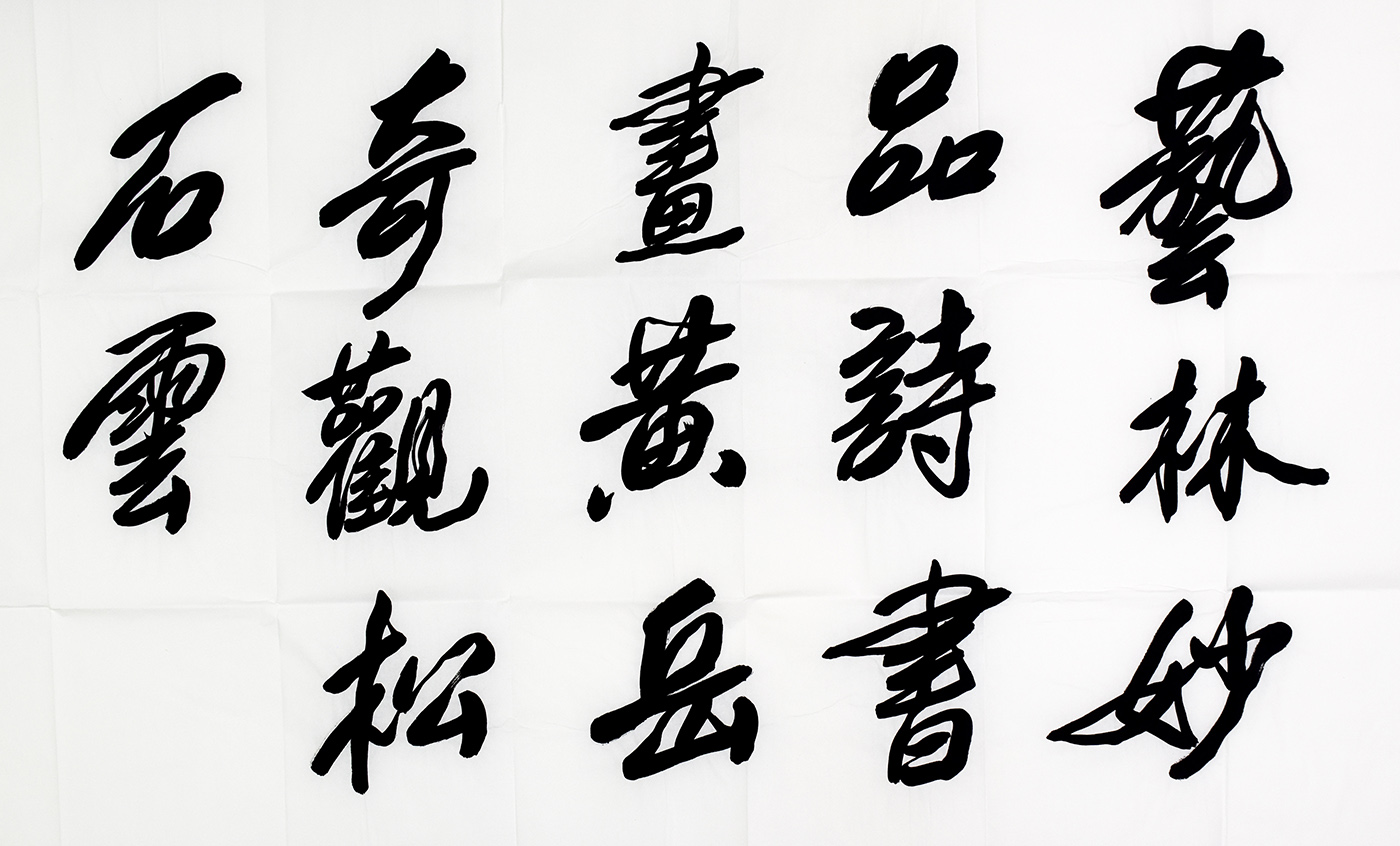 藝林妙
品詩書
畫黃岳
奇觀松
石雲